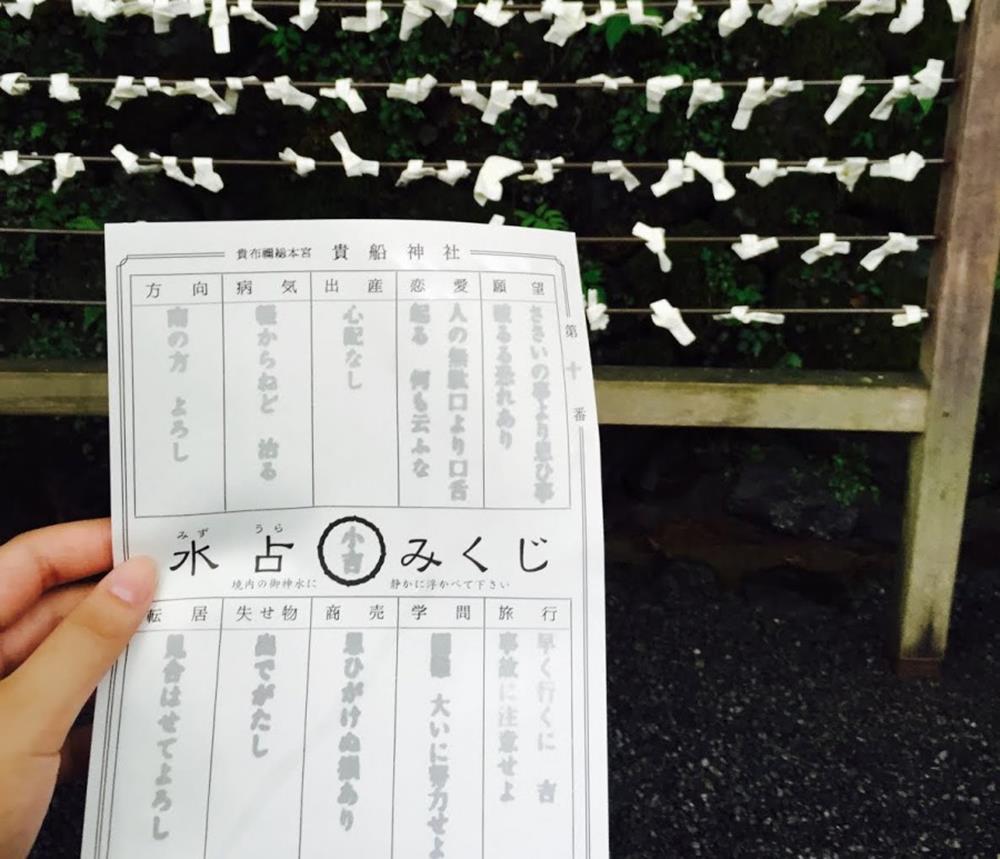 貴布禰総本宮 貴船神社
第十番
願望
ささいの事より思ひ事
破るる恐れあり
恋愛
人の無駄口より口舌
起る 何も云ふな
出産
心配なし
病気
軽からねど 治る
方向
南の方 よろし
みず うら
水占 小吉 みくじ
境内の御神水に 静かに浮かべて下さい
旅行
早く行くに 吉
事故に注意せよ
学問
大いに努力せよ
商売
思ひがけぬ損あり
失せ物
出でがたし
転居
見合はせてよろし